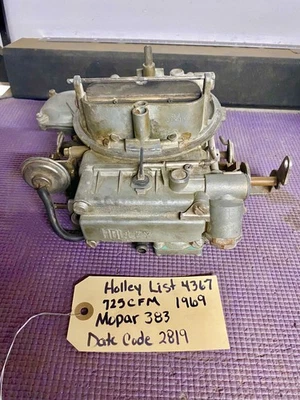 HOLLEY
Holley List 4367
725CFM 1969
Mopar 383
Date Code 2819